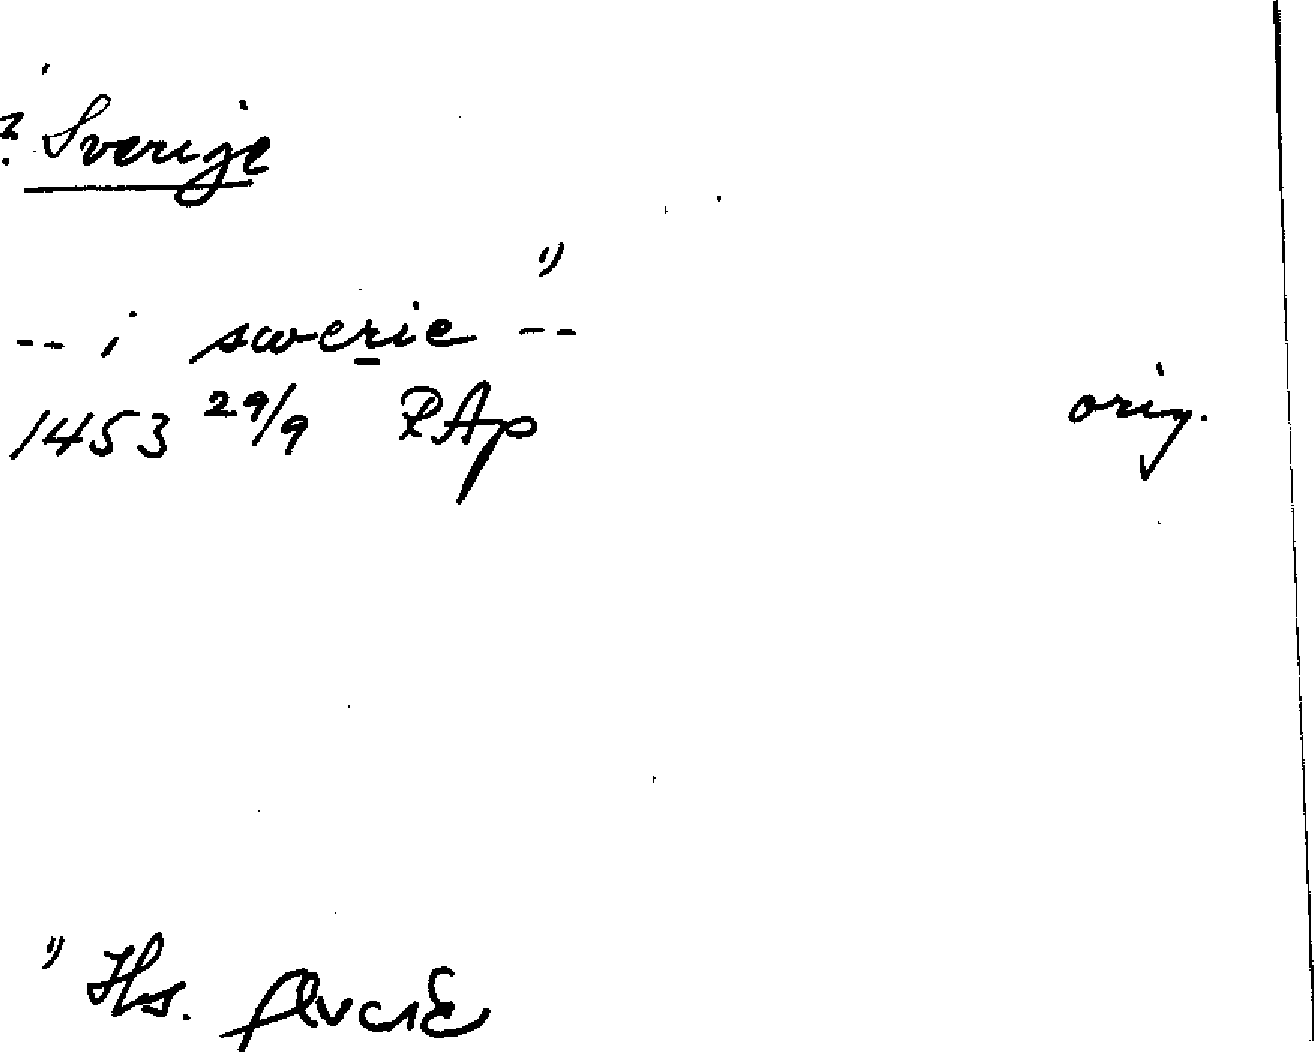 ? Sverige
-- i swerie ¹) --
1453 29/9 RAp orig.
¹) Hs.